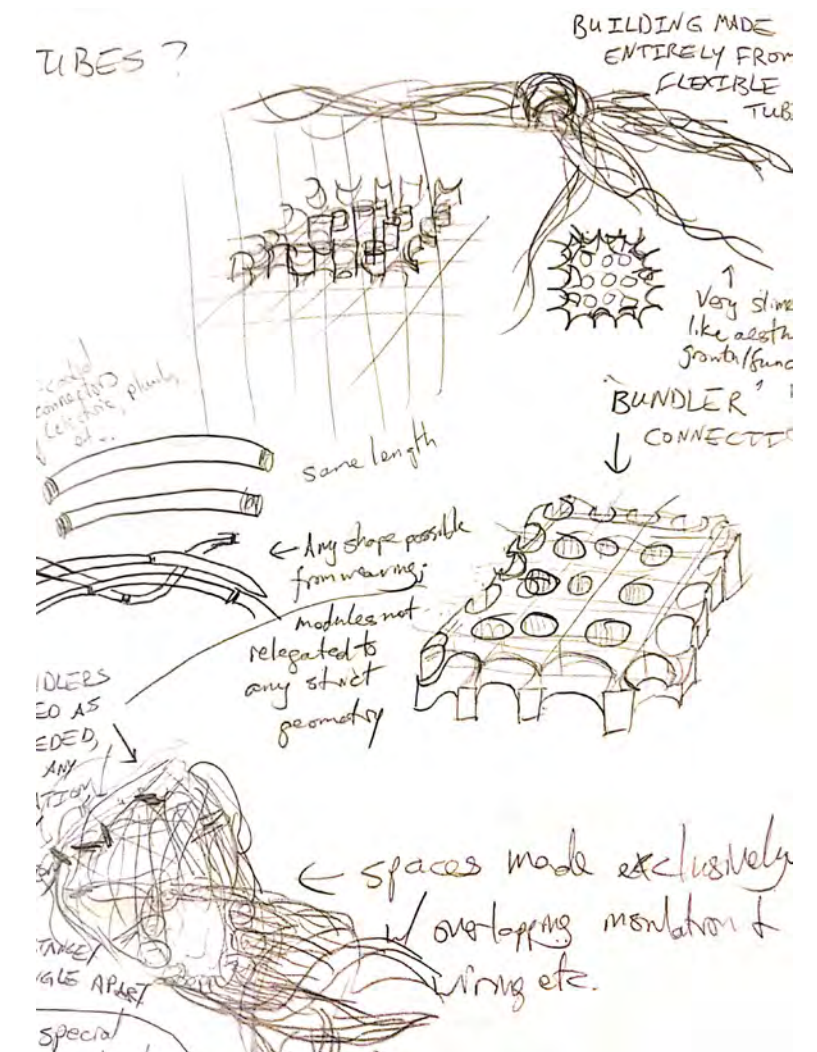 UBES ?
BUILDING MADE
ENTIRELY FROM
FLEXIBLE
TUB
Very slime
like aesth
growth/func
"BUNDLER"
CONNECTIO
connectors
same length
← Any shape possible
from weaving;
modules not
relegated to
any strict
geometry
DLERS
ED AS
EDED,
ANY
ATION
← spaces made exclusively
w/ overlapping insulation &
wiring etc.
GLE APART
special